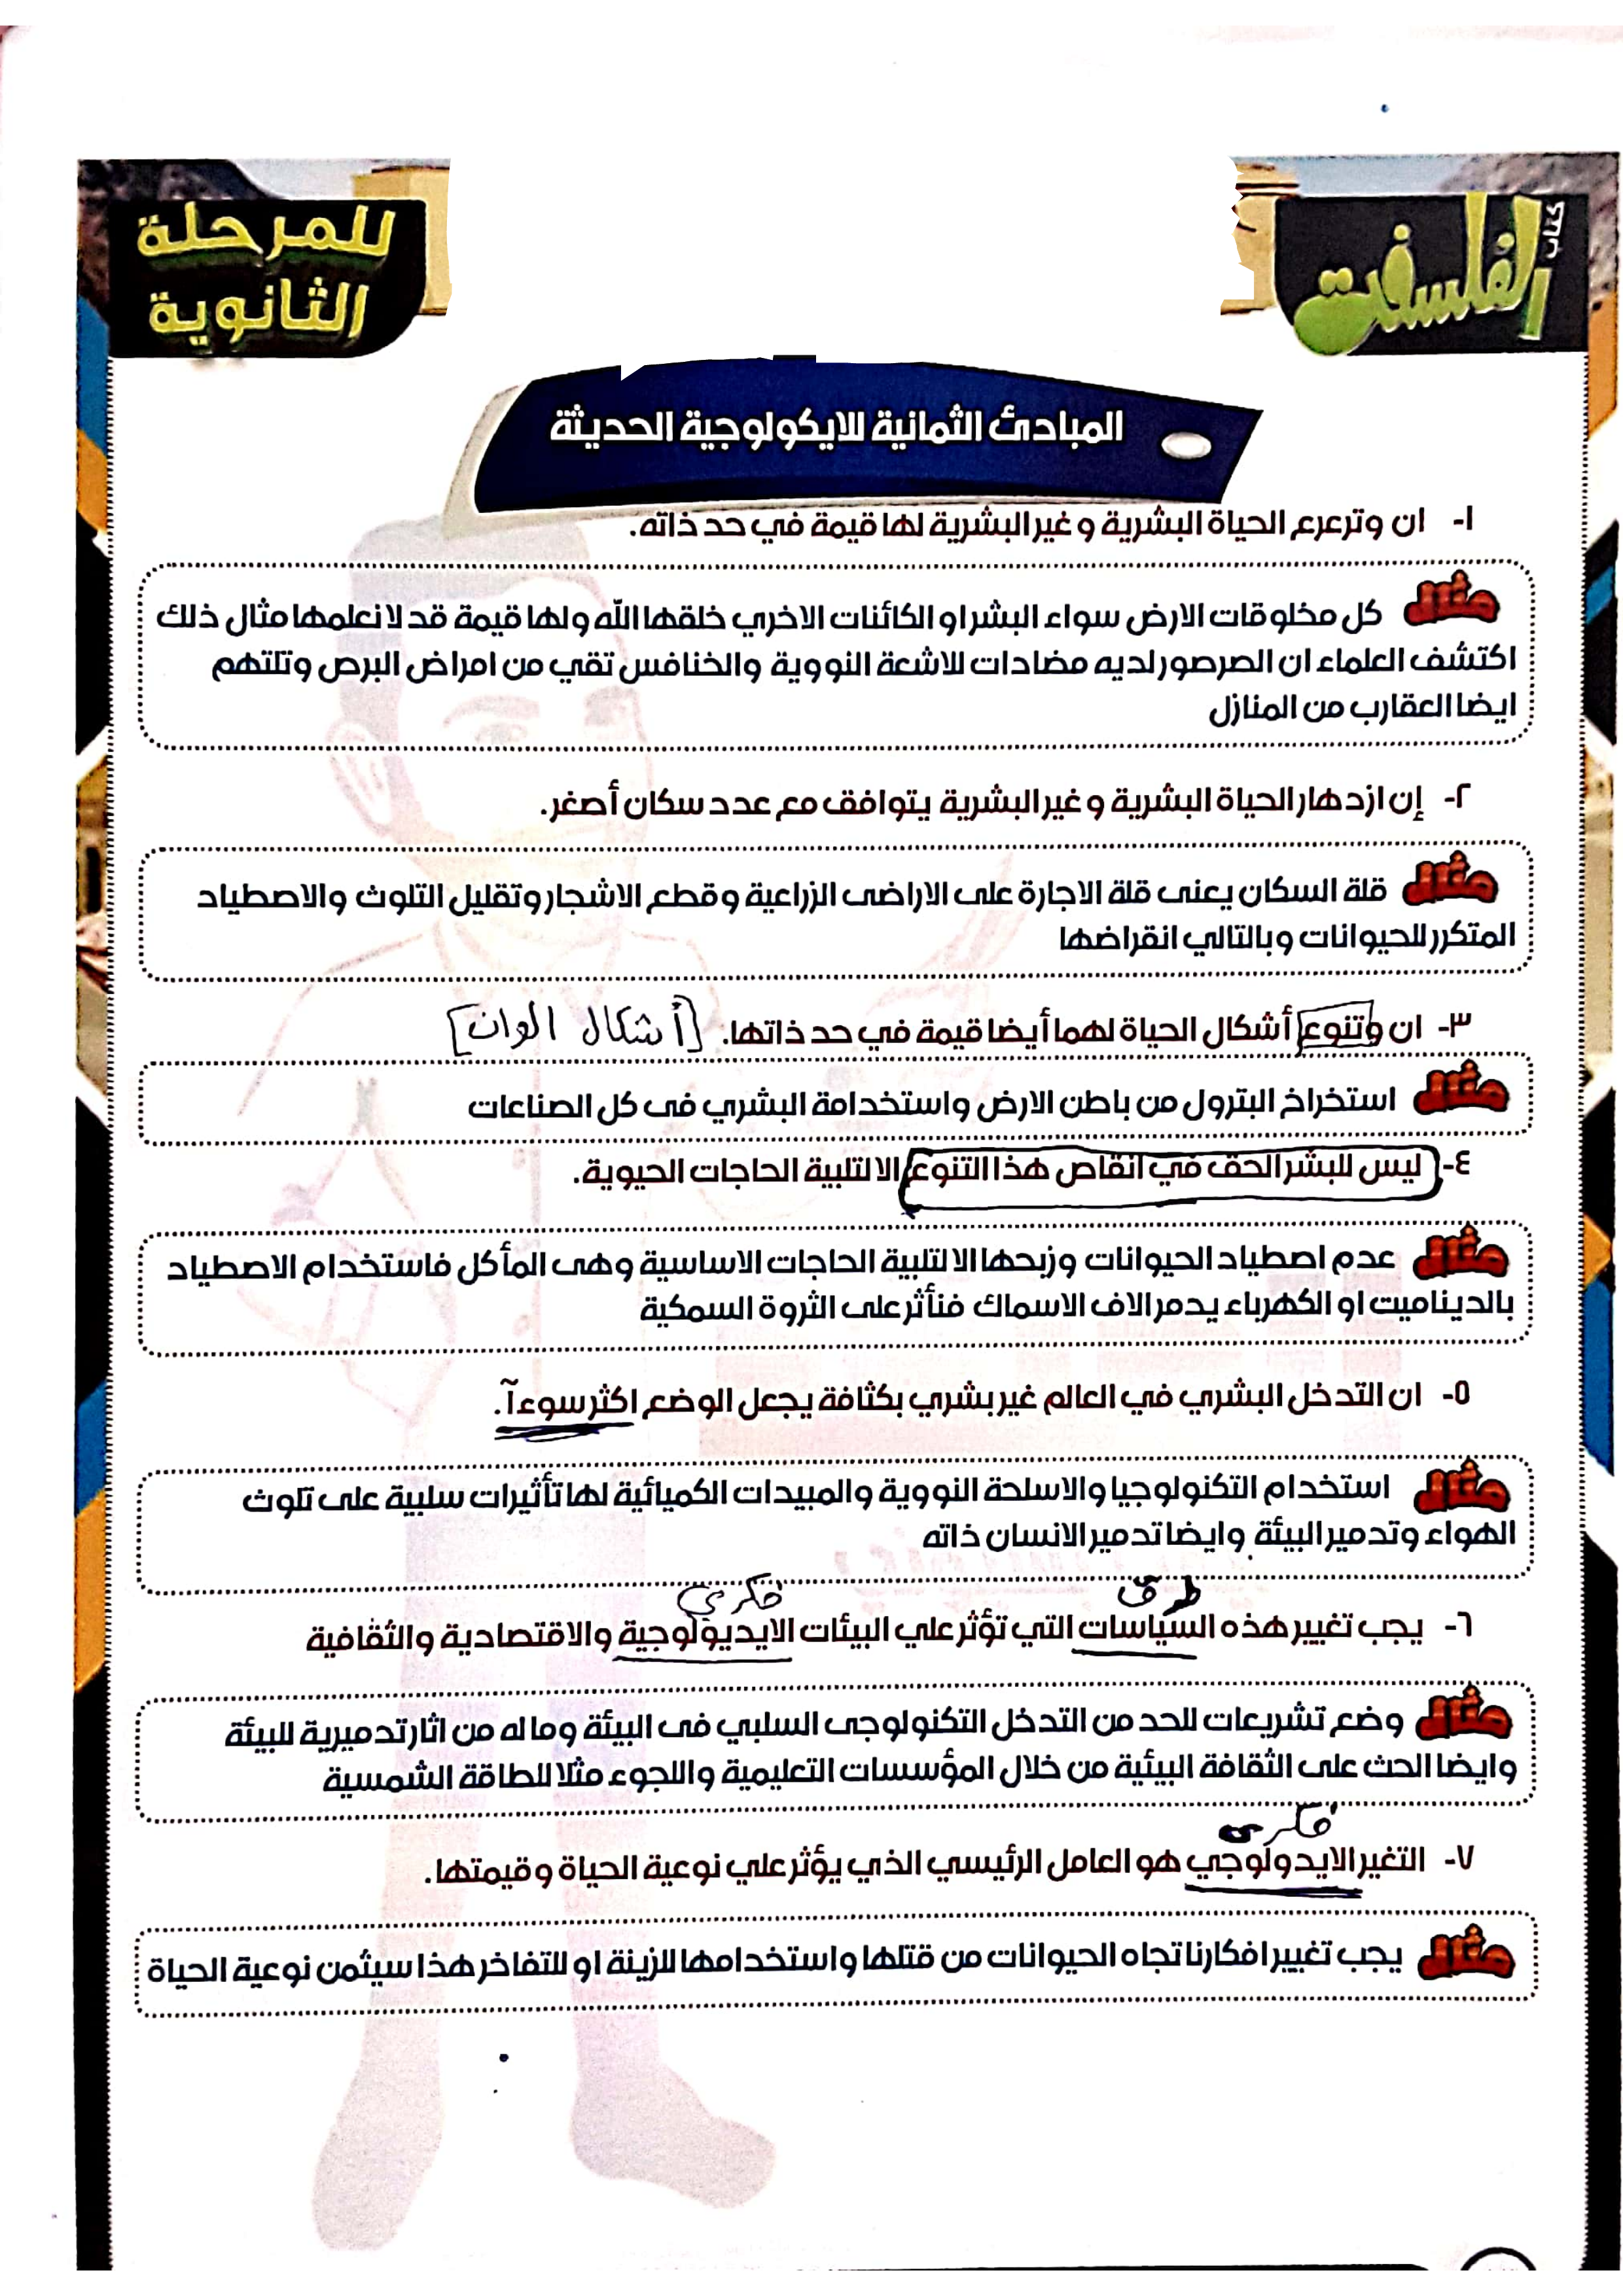 كتاب
الفلسفة
للمرحلة
الثانوية
المبادئ الثمانية للايكولوجية الحديثة
١- ان وترعرع الحياة البشرية و غير البشرية لها قيمة في حد ذاته.
مثال كل مخلوقات الارض سواء البشر او الكائنات الاخري خلقها الله ولها قيمة قد لا نعلمها مثال ذلك
اكتشف العلماء ان الصرصور لديه مضادات للاشعة النووية والخنافس تقي من امراض البرص وتلتهم
ايضا العقارب من المنازل
٢- إن ازدهار الحياة البشرية و غير البشرية يتوافق مع عدد سكان أصغر.
مثال قلة السكان يعنى قلة الاجارة على الاراضى الزراعية و قطع الاشجار وتقليل التلوث والاصطياد
المتكرر للحيوانات وبالتالي انقراضها
٣- ان وتنوع أشكال الحياة لهما أيضا قيمة في حد ذاتها. [أشكال الوان]
مثال استخراخ البترول من باطن الارض واستخدامة البشري فى كل الصناعات
٤- ليس للبشر الحق في انقاص هذا التنوع الا لتلبية الحاجات الحيوية.
مثال عدم اصطياد الحيوانات وزبحها الا لتلبية الحاجات الاساسية وهى المأكل فاستخدام الاصطياد
بالديناميت او الكهرباء يدمر الاف الاسماك فنأثر على الثروة السمكية
٥- ان التدخل البشري في العالم غير بشري بكثافة يجعل الوضع اكثر سوءآ.
مثال استخدام التكنولوجيا والاسلحة النووية والمبيدات الكميائية لها تأثيرات سلبية على تلوث
الهواء وتدمير البيئة وايضا تدمير الانسان ذاته
طرق فكرى
٦- يجب تغيير هذه السياسات التي تؤثر علي البيئات الايديولوجية والاقتصادية والثقافية
مثال وضع تشريعات للحد من التدخل التكنولوجى السلبي فى البيئة وما له من اثار تدميرية للبيئة
وايضا الحث على الثقافة البيئية من خلال المؤسسات التعليمية واللجوء مثلا للطاقة الشمسية
فكرى
٧- التغير الايدولوجي هو العامل الرئيسي الذي يؤثر علي نوعية الحياة و قيمتها.
مثال يجب تغيير افكارنا تجاه الحيوانات من قتلها واستخدامها للزينة او للتفاخر هذا سيثمن نوعية الحياة